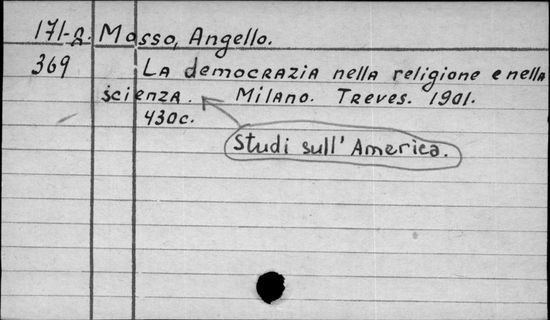 171-2. Mosso, Angello.
369 La democrazia nella religione e nella
scienza. Milano. Treves. 1901.
430c.
Studi sull' America.